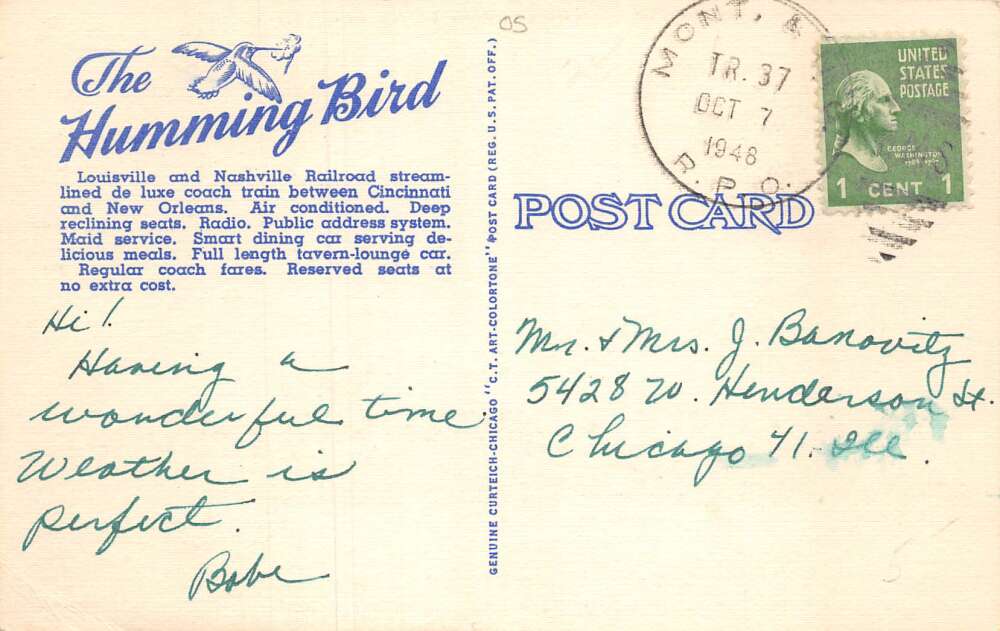 OS
The
Humming Bird
Louisville and Nashville Railroad stream-
lined de luxe coach train between Cincinnati
and New Orleans. Air conditioned. Deep
reclining seats. Radio. Public address system.
Maid service. Smart dining car serving de-
licious meals. Full length tavern-lounge car.
Regular coach fares. Reserved seats at
no extra cost.
Hi!
Having a
wonderful time
Weather is
perfect.
Babe
GENUINE CURTEICH-CHICAGO "C.T. ART-COLORTONE" POST CARD (REG. U.S. PAT. OFF.)
MONT, &
TR. 37
OCT 7
1948
R.P.O.
UNITED
STATES
POSTAGE
GEORGE
WASHINGTON
1 CENT 1
POST CARD
Mr. & Mrs. J. Banovitz
5428 W. Henderson St.
Chicago 41. Ill.